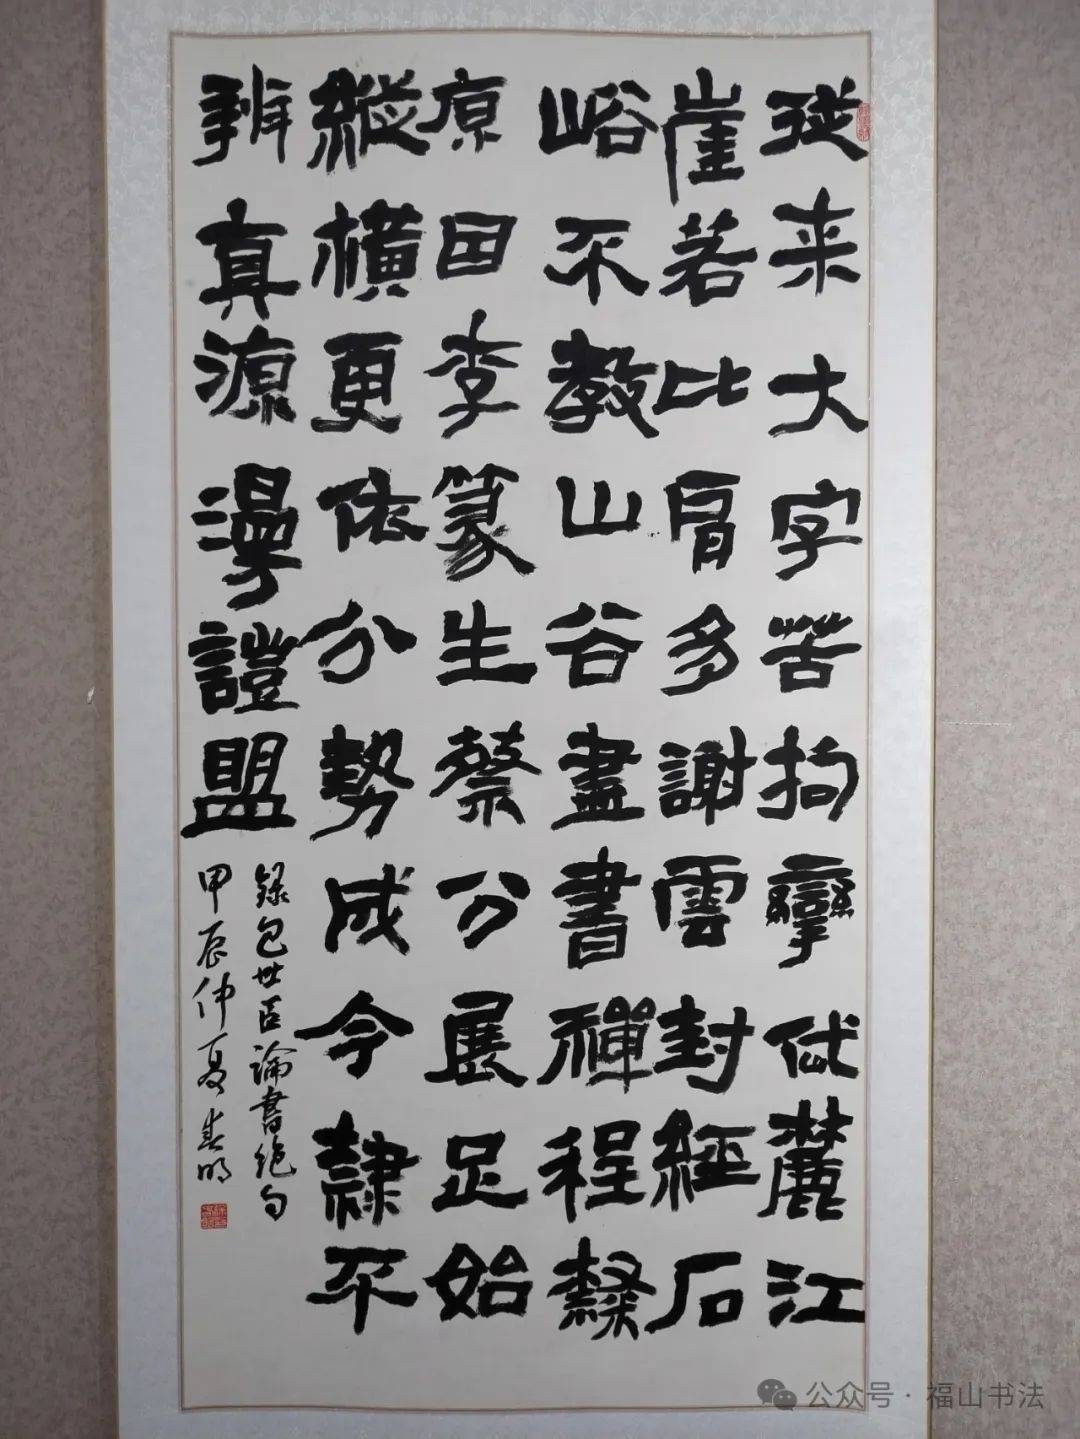 從来大字苦拘攣岱麓江
崖若比肩多謝雲封經石
峪不教山谷盡書禪程隸
原因李篆生蔡分展足始
縱橫更依分勢成今隸不
辨真源漫證盟
録包世臣論書絶句
甲辰仲夏春明
公众号·福山书法